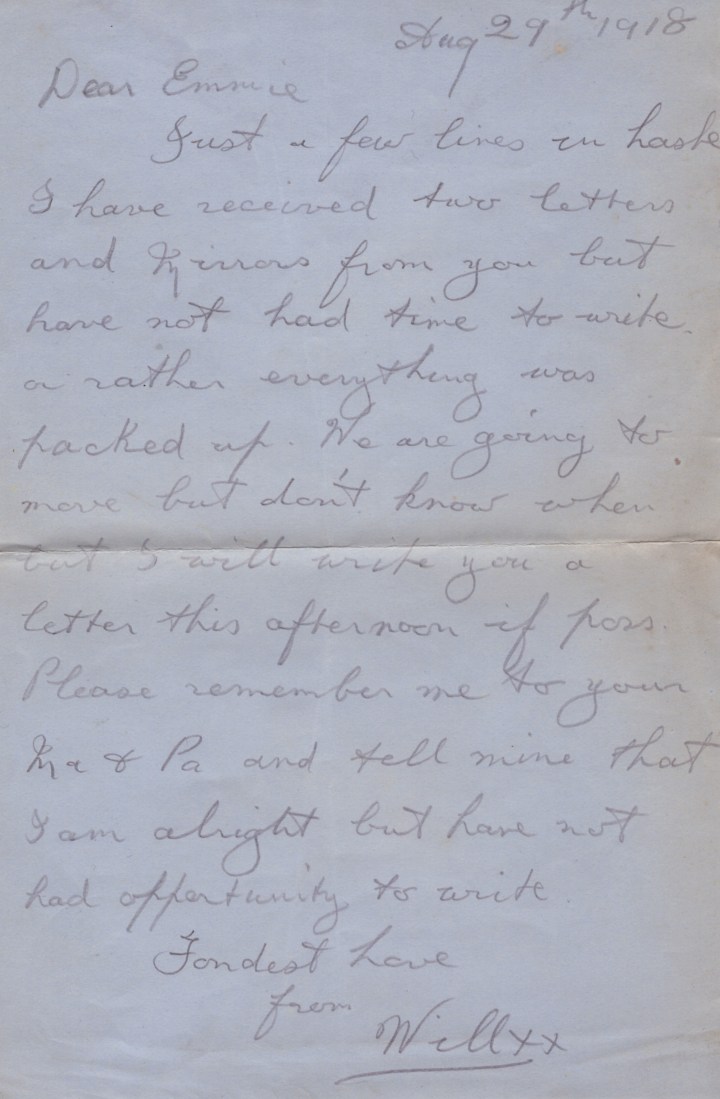 Aug 29th 1918
Dear Emmie
Just a few lines in haste
I have received two letters
and Mirrors from you but
have not had time to write.
or rather everything was
packed up. We are going to
move but don't know when
but I will write you a
letter this afternoon if poss.
Please remember me to your
Ma & Pa and tell mine that
I am alright but have not
had opportunity to write.
Fondest Love
from
Will xx